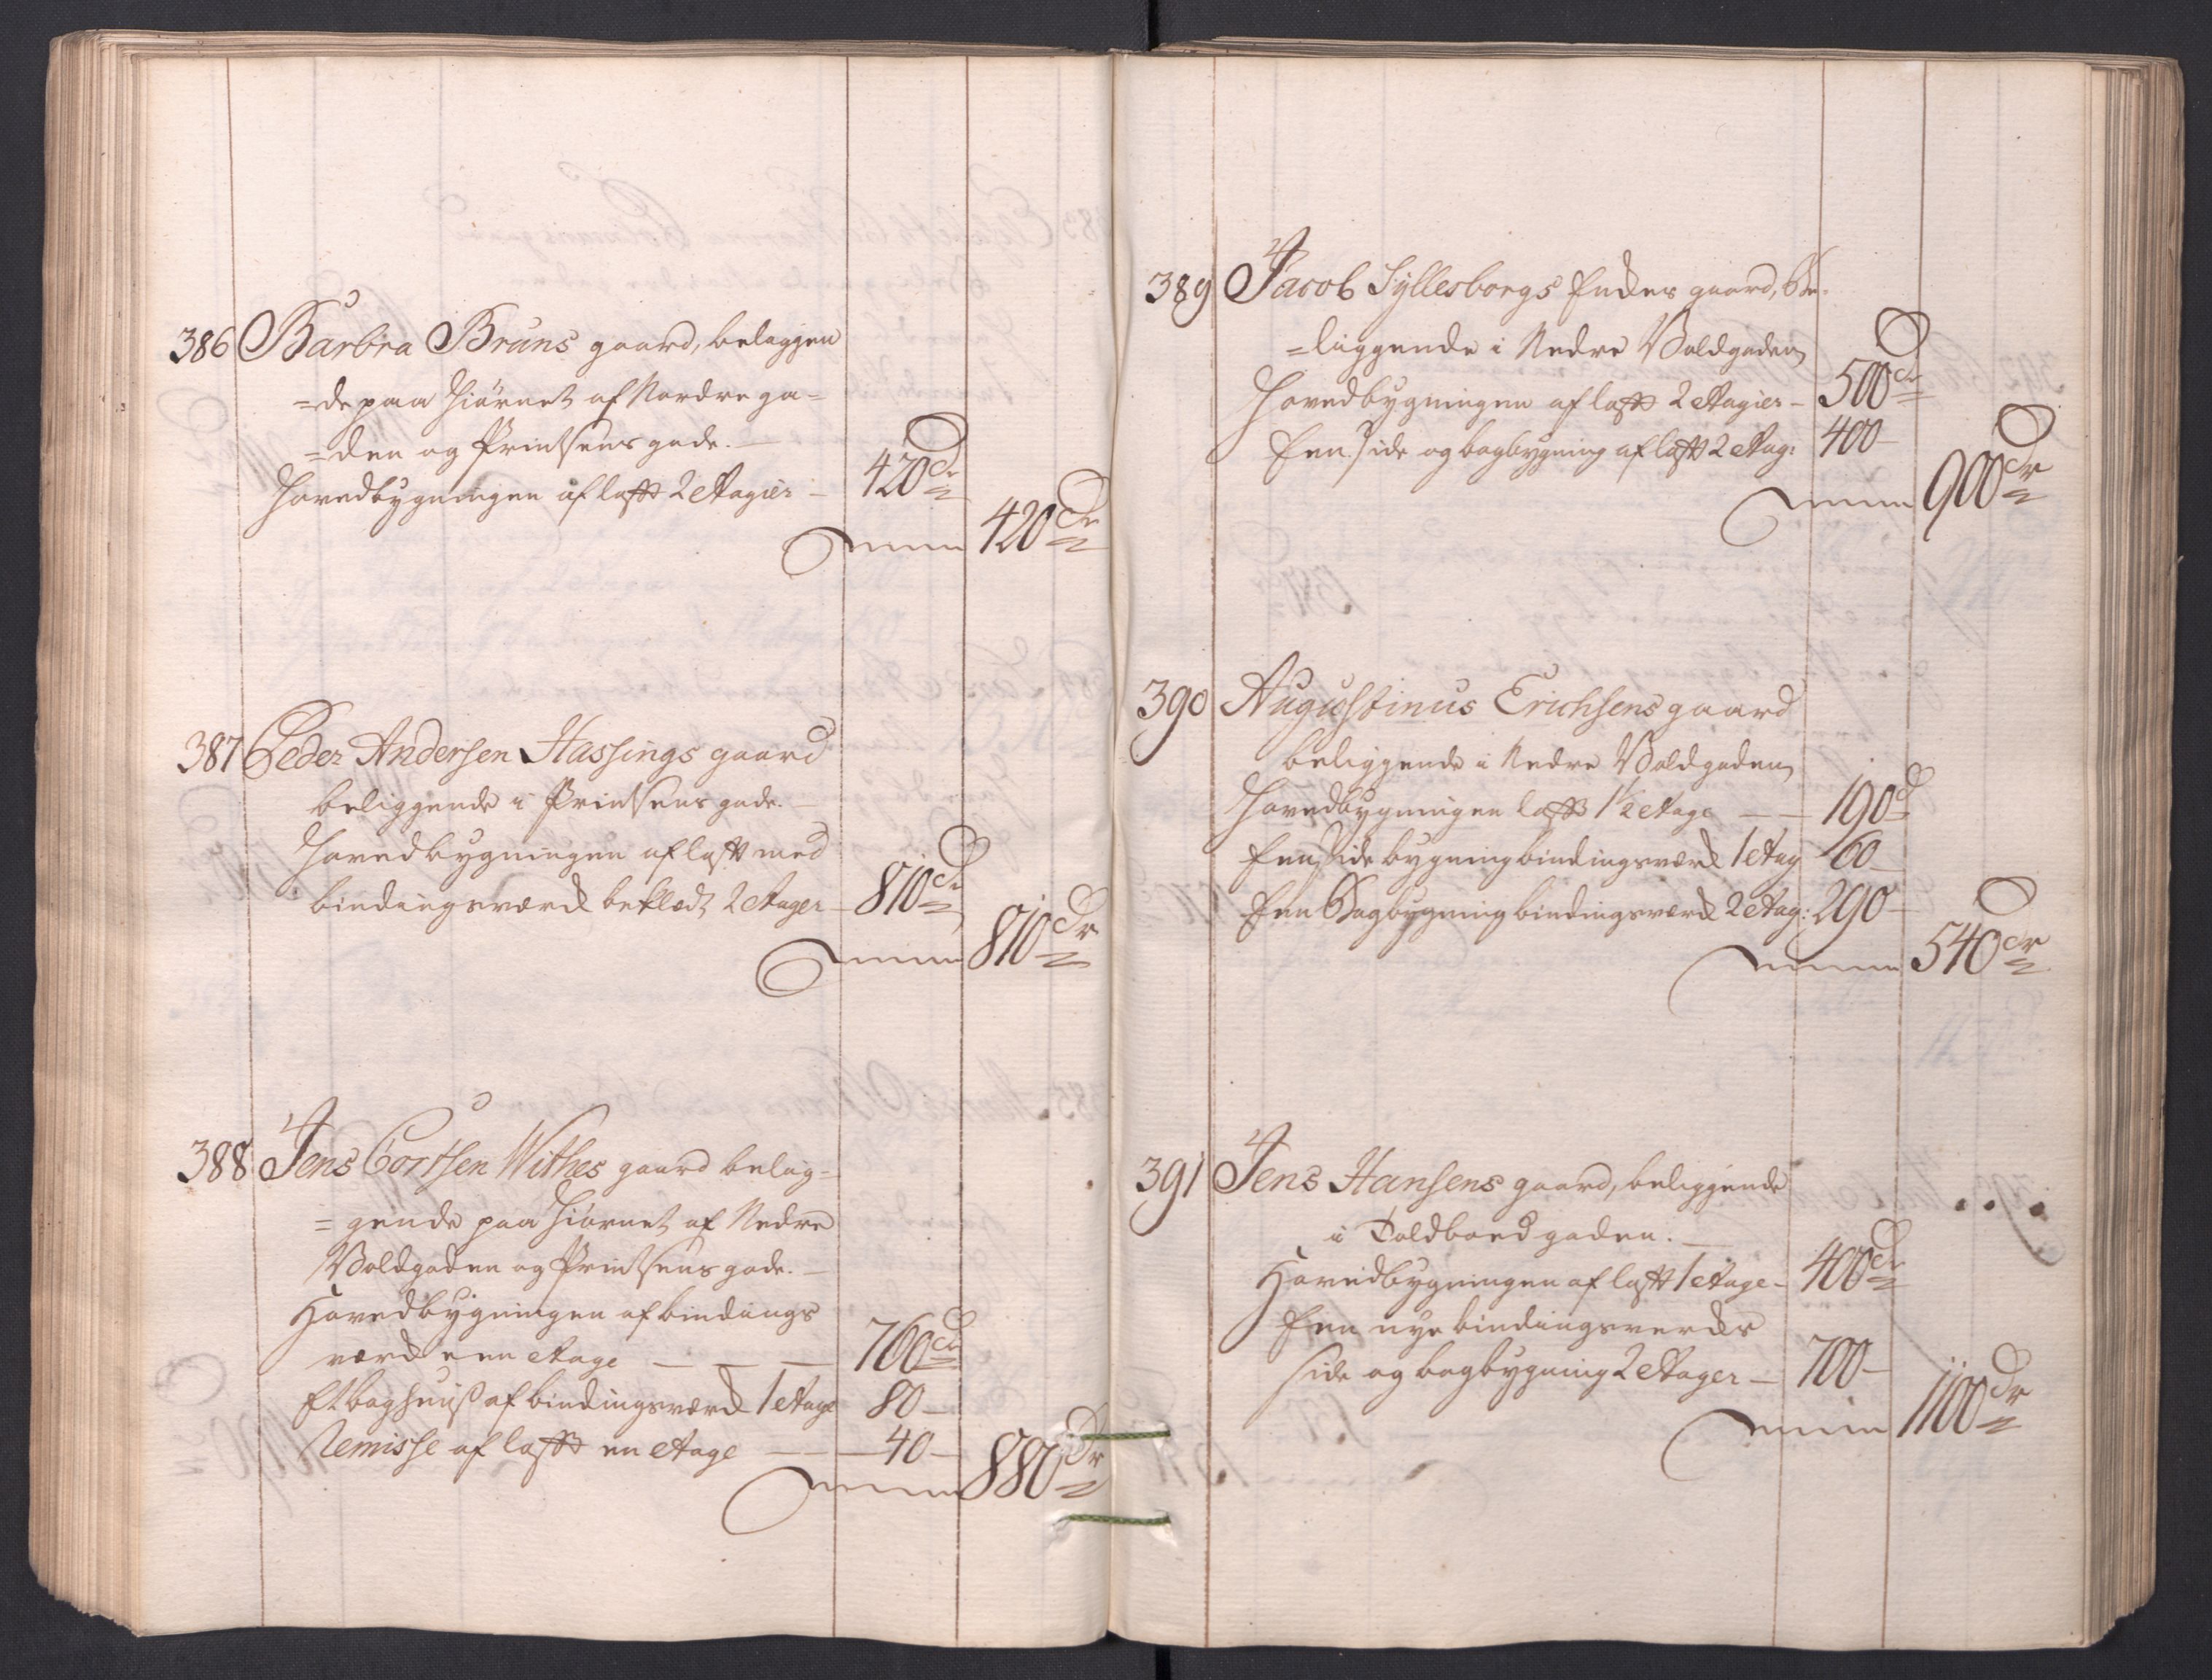 386 Barbra Bruns gaard, beliggen
=de paa Hiörnet af Nordre ga=
=den og Printsens gade.
Hovedbygningen af laft 2 Etagier – 420 dr
Summa 420 dr
387 Peder Andersen Hassings gaard
beliggende i Printsens gade.
Hovedbygningen af laft med
bindingsværck beklædt 2 Etager – 810 dr
Summa 810 dr
388 Jens Cortsen Withes gaard belig=
=gende paa Hiörnet af Nedre
Voldgaden og Printsens gade.
Hovedbygningen af bindings
værck een Etage – – – 760 dr
Et baghuuß af bindingsværck 1 Etage 80 –
Remisse af laft en Etage – 40 –
Summa 880 dr
389 Jacob Syllesborgs Enckes gaard, be=
=liggende i Nedre Voldgaden
Hovedbygningen af laft 2 Etagier – 500 dr
Een side og bagbygning af laft 2 Etag: 400 –
Summa 900 dr
390 Augustinus Erichsens gaard
beliggende i Nedre Voldgaden
Hovedbygningen laft 1 1/2 Etage – – 190 d
Een side bygning bindingsværck 1 Etag 60 –
Een Bagbygning bindingsværck 2 Etag: 290 –
Summa 540 dr
391 Jens Hansens gaard, beliggende
i Toldboed gaden.
Hovedbygningen af laft 1 Etage – 400 dr
Een nye bindingsvercks
side og bagbygning 2 Etager – 700 –
Summa 1100 dr